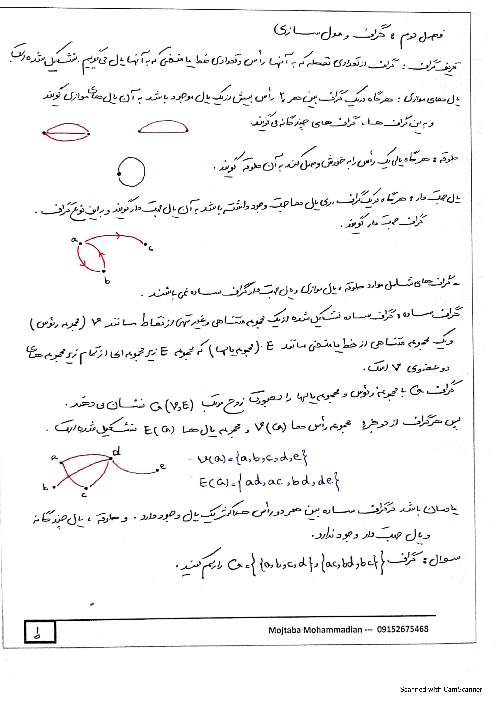 فصل دوم : گراف و مدل سازی
تعریف گراف : گراف از تعدادی نقطه که به آنها رأس و تعدادی خط یا منحنی که به آنها یال می گوییم . تشکیل شده است
یال های موازی : هرگاه در یک گراف بین هر ۲ رأس بیش از یک یال موجود باشد به آن یال های موازی گویند
و به این گراف ها ، گراف های چندگانه می گویند
طوقه : هرگاه یالی یک رأس را به خودش وصل کند به آن طوقه گویند .
یال جهت دار : هرگاه در یک گراف روی یال ها جهت وجود داشته باشد به آن یال جهت دار گویند و به این نوع گراف ،
گراف جهت دار گویند .
a
c
b
- گراف های شامل موارد طوقه ، یال موازی و یال جهت دار گراف ساده نمی باشند .
گراف ساده : گراف ساده تشکیل شده از یک مجموعه متناهی و غیر تهی از نقاط مانند V (مجموعه رئوس)
و یک مجموعه متناهی از خط یا منحنی مانند E (مجموعه یالها) که مجموعه E زیر مجموعه ای از تمام زیر مجموعه های
دو عضوی V است .
گراف G با مجموعه رئوس و مجموعه یالها را بصورت زوج مرتب G(V,E) نشان می دهند .
پس هر گراف از دو جزء مجموعه رأس ها V(G) و مجموعه یال ها E(G) تشکیل شده است .
a d
b c e
- V(G)={a,b,c,d,e}
E(G)={ad,ac,bd,de}
یادمان باشد در گراف ساده بین هر دو رأس حداکثر یک یال وجود دارد . و طوقه ، یال چندگانه
و یال جهت دار وجود ندارد .
سوال : گراف G={{a,b,c,d},{ac,bd,bc}} را رسم کنید .
Mojtaba Mohammadian --- 09152675468
Scanned with CamScanner